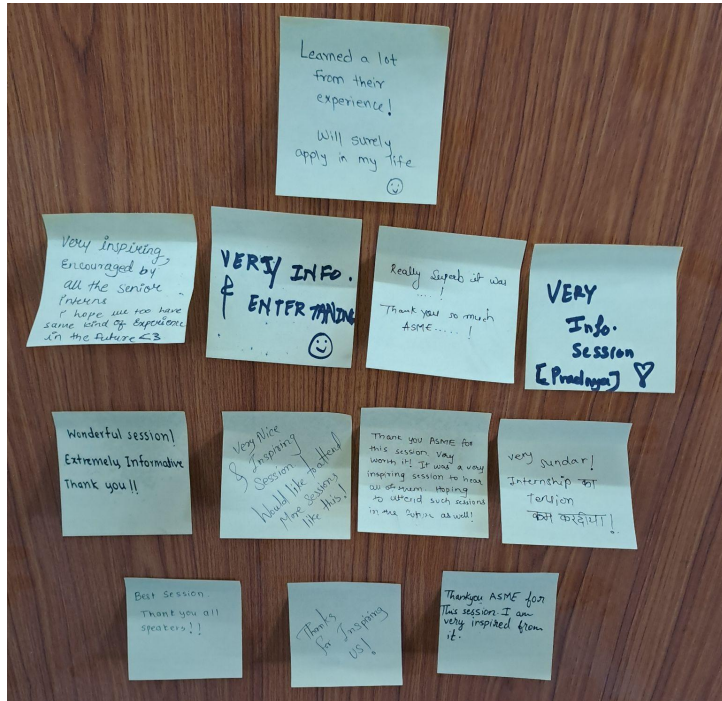 Learned a lot
from their
experience!
Will surely
apply in my life
Very inspiring,
Encouraged by
all the senior
interns
I hope we too have
same kind of Experience
in the future <3
VERY INFO.
& ENTERTAINING
Really Superb it was
....!
Thank you so much
ASME.....!
VERY
Info.
Session
[Pradnya]
Wonderful session!
Extremely, Informative
Thank you!!
Very Nice
& Inspiring
Session
Would like to attend
More sessions
like this!
Thank you ASME for
this session. Very
worth it! It was a very
inspiring session to hear
all of them. Hoping
to attend such sessions
in the future as well!
very sundar!
Internship का
Tension
कम करदीया!
Best Session.
Thank you all
speakers!!
Thanks
for Inspiring
US!
Thankyou ASME for
This session. I am
very inspired from
it.